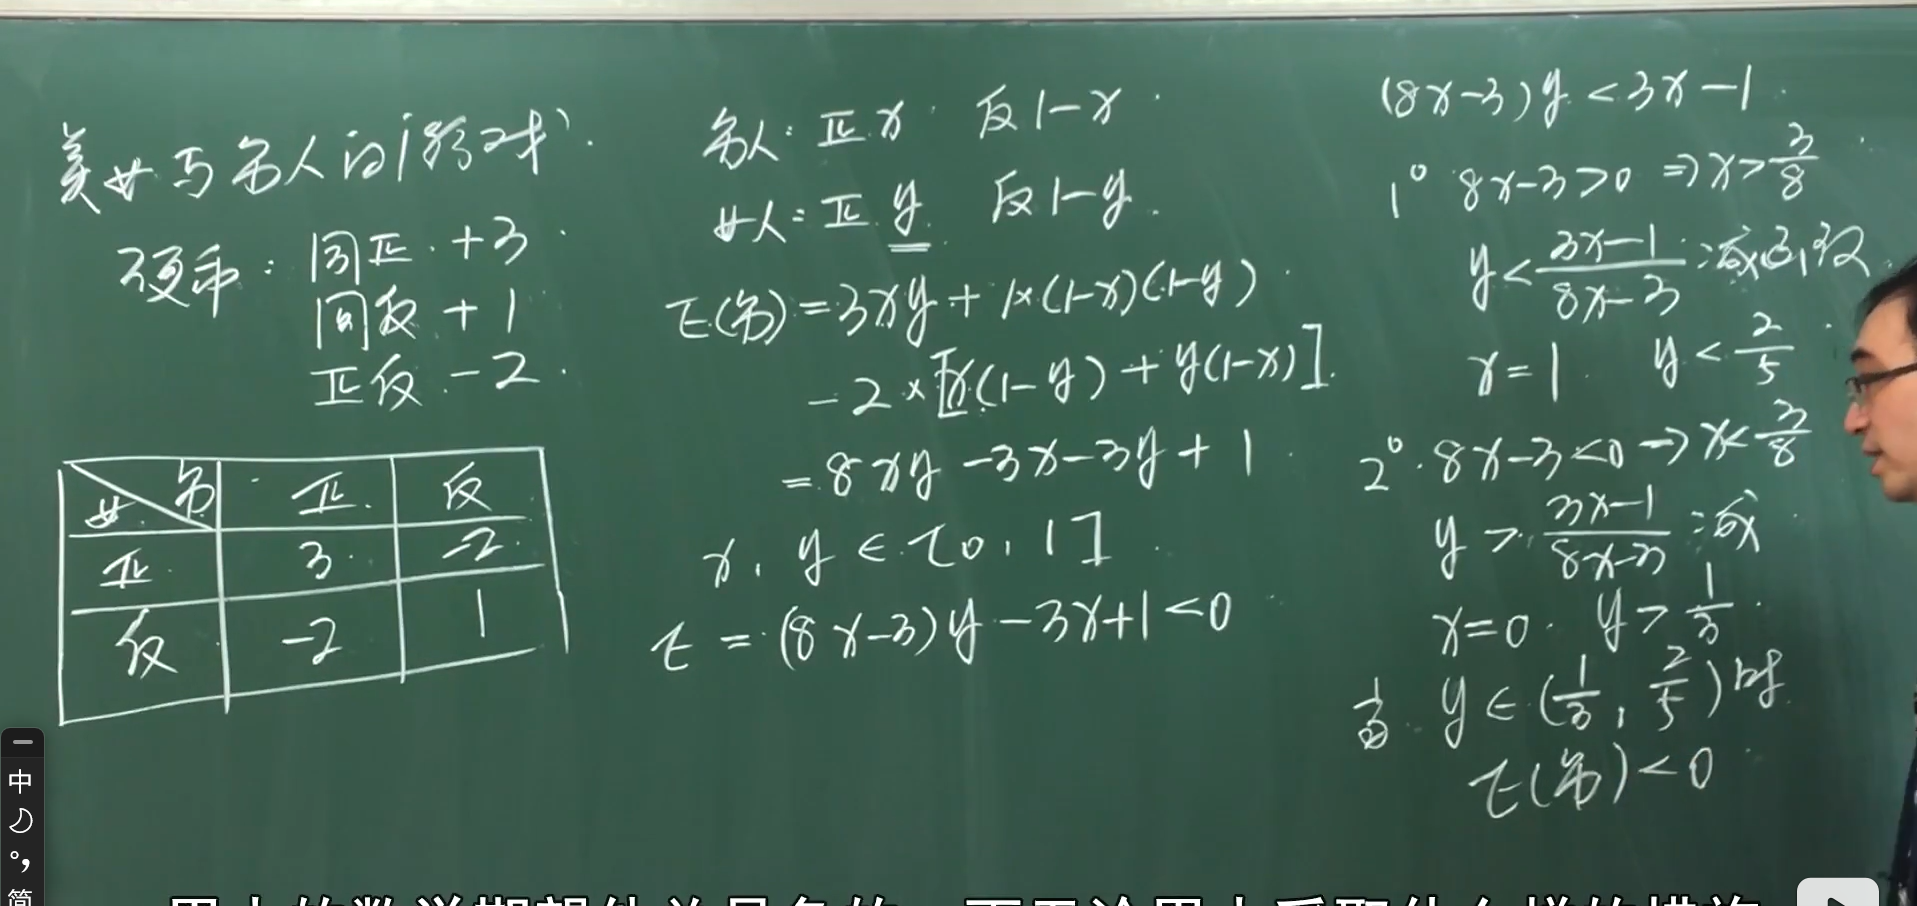 美女与男人的游戏
硬币：同正 +3
同反 +1
正反 -2
女 男 正 反
正 3 -2
反 -2 1
男人：正 x 反 1-x
女人：正 y 反 1-y
E(男)=3xy+1×(1-x)(1-y)
-2×[x(1-y)+y(1-x)]
=8xy-3x-3y+1
x, y∈[0, 1]
E=(8x-3)y-3x+1<0
(8x-3)y<3x-1
1° 8x-3>0 ⇒x>3/8
y<(3x-1)/(8x-3)：减函数
x=1 y<2/5
2° 8x-3<0→x<3/8
y>(3x-1)/(8x-3)：减
x=0 y>1/3
当 y∈(1/3, 2/5)时
E(男)<0
中
简